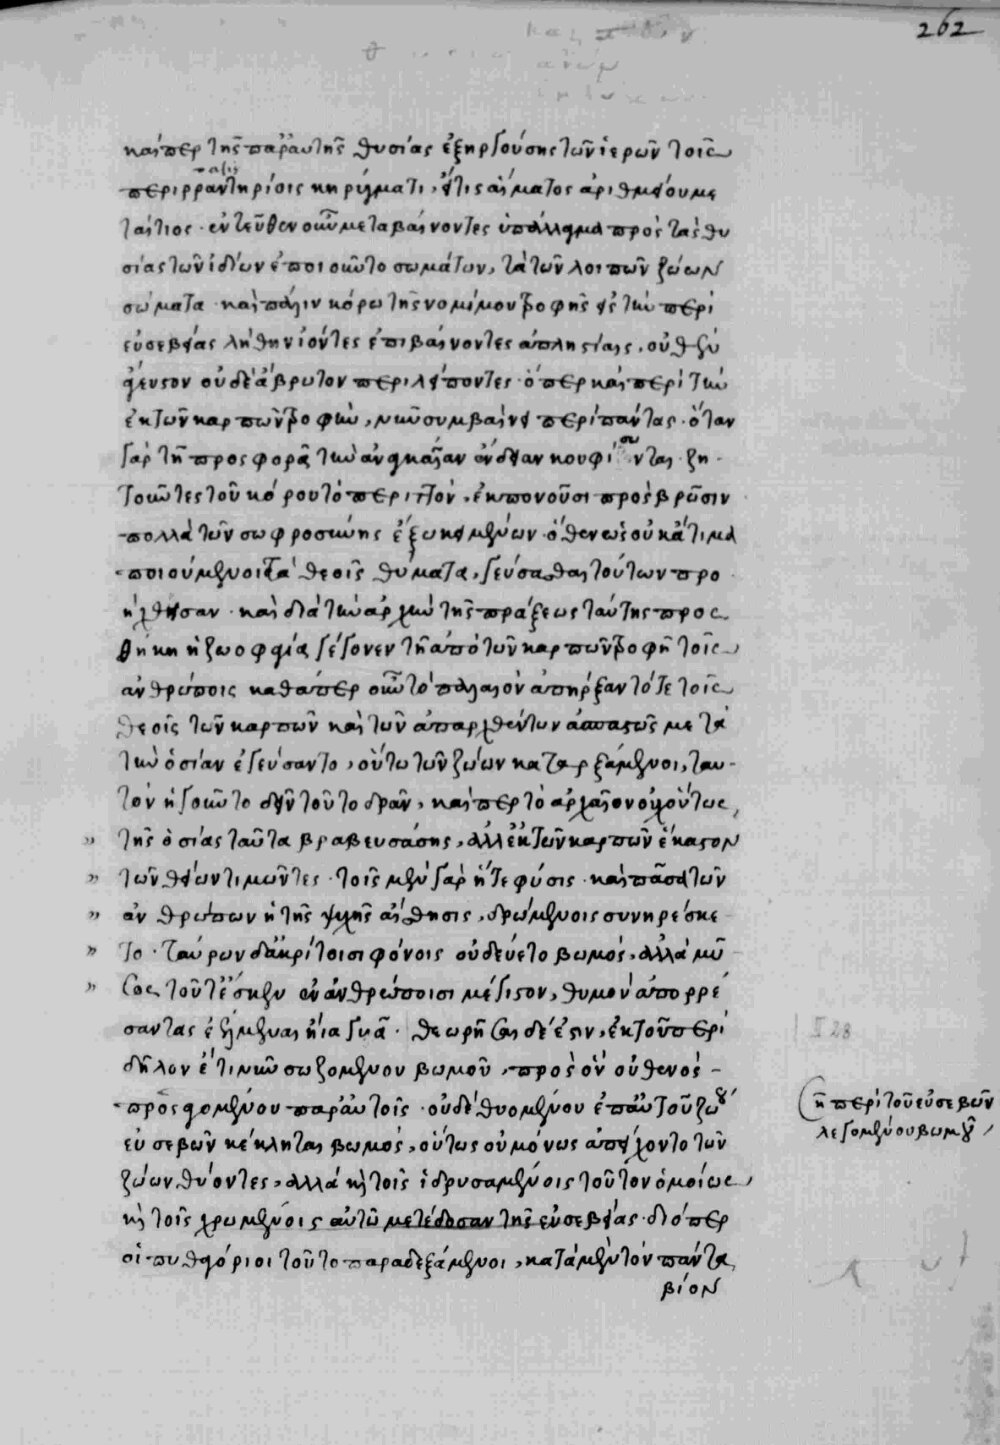 262
καίπερ τῆς παρ' αὐτῆς θυσίας ἐξηργούσης τῶν ἱερῶν τοῖς
περιρραντηρίοις κηρύγματι, εἴ τις αἵματος ἀριθμείου με
ταίτιος· ἐντεῦθεν οὖν μεταβαίνοντες ὑπάλλαγμα πρὸς τὰς θυ
σίας τῶν ἰδίων ἐποιοῦντο σωμάτων, τὰ τῶν λοιπῶν ζώων
σώματα· καὶ πάλιν κόρῳ τῆς νομίμου τροφῆς εἰς τὴν περὶ
εὐσεβείας λήθην ἰόντες ἐπιβαίνοντες ἀπληστίαις, οὐθὲν
ἄγευστον οὐδὲ ἄβρωτον περιλείποντες· ὅπερ καὶ περὶ τὴν
ἐκ τῶν καρπῶν τροφὴν, νῦν συμβαίνει περὶ πάντας· ὅταν
γὰρ τῇ προσφορᾷ τὴν ἀναγκαίαν ἔνδειαν κουφίσωνται ζη
τοῦντες τοῦ κόρου τὸ περιττὸν, ἐκπονοῦσι πρὸς βρῶσιν
πολλὰ τῶν σωφροσύνης ἔξω κειμένων· ὅθεν ὡς οὐκ ἄτιμα
ποιούμενοι τὰ θεοῖς θύματα, γεύσασθαι τούτων προ
ήχθησαν· καὶ διὰ τὴν ἀρχὴν τῆς πράξεως ταύτης προσ
θήκη ἡ ζωοφαγία γέγονεν τῇ ἀπὸ τῶν καρπῶν τροφῇ τοῖς
ἀνθρώποις καθάπερ οὖν τὸ παλαιὸν ἀπήρξαντό τε τοῖς
θεοῖς τῶν καρπῶν καὶ τῶν ἀπαρχθέντων ἀσπαστῶς μετὰ
τὴν ὁσίαν ἐγεύσαντο, οὕτω τῶν ζώων καταρξάμενοι, ταυ
τὸν ἡγοῦντο δεῖν τοῦτο δρᾶν, καίπερ τὸ ἀρχαῖον οὐχ οὕτως
τῆς ὁσίας ταῦτα βραβευσάσης, ἀλλ' ἐκ τῶν καρπῶν ἕκαστον
τῶν θεῶν τιμῶντες· τοῖς μὲν γὰρ ἥ τε φύσις· καὶ πᾶσα τῶν
ἀνθρώπων ἡ τῆς ψυχῆς αἴσθησις, δρωμένοις συνηρέσκε
το· Ταύρων δ' ἀκρίτοισι φόνοις οὐ δεύετο βωμὸς, ἀλλὰ μῦ
σος τοῦτ' ἔσκεν ἐν ἀνθρώποισι μέγιστον, θυμὸν ἀπορρέ
σαντας ἐέδμεναι ἠία γυῖα· θεωρῆσαι δέ ἐστιν, ἐκ τοῦ περὶ
δῆλον ἔτι νῦν σωζομένου βωμοῦ, πρὸς ὃν οὐθενὸς
προσαγομένου παρ' αὐτοῖς· οὐδὲ θυομένου ἐπ' αὐτοῦ ζώου
εὐσεβῶν κέκληται βωμὸς, οὕτως οὐ μόνως ἀπείχοντο τῶν
ζώων θύοντες, ἀλλὰ καὶ τοῖς ἱδρυσαμένοις τοῦτον ὁμοίως
καὶ τοῖς χρωμένοις αὐτῷ μετέδοσαν τῆς εὐσεβείας· διόπερ
οἱ πυθαγόριοι τοῦτο παραδεξάμενοι, κατὰ μὲν τὸν πάντα
βίον
I 28
ἢ περὶ τοῦ εὐσεβῶν
λεγομένου βωμοῦ